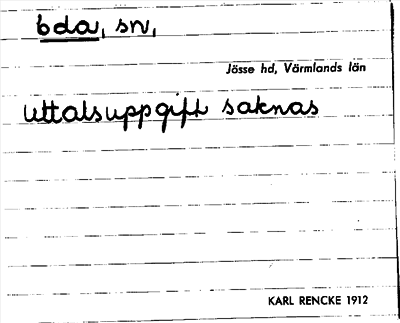 Eda, sn,
Jösse hd, Värmlands län
Uttalsuppgift saknas
KARL RENCKE 1912